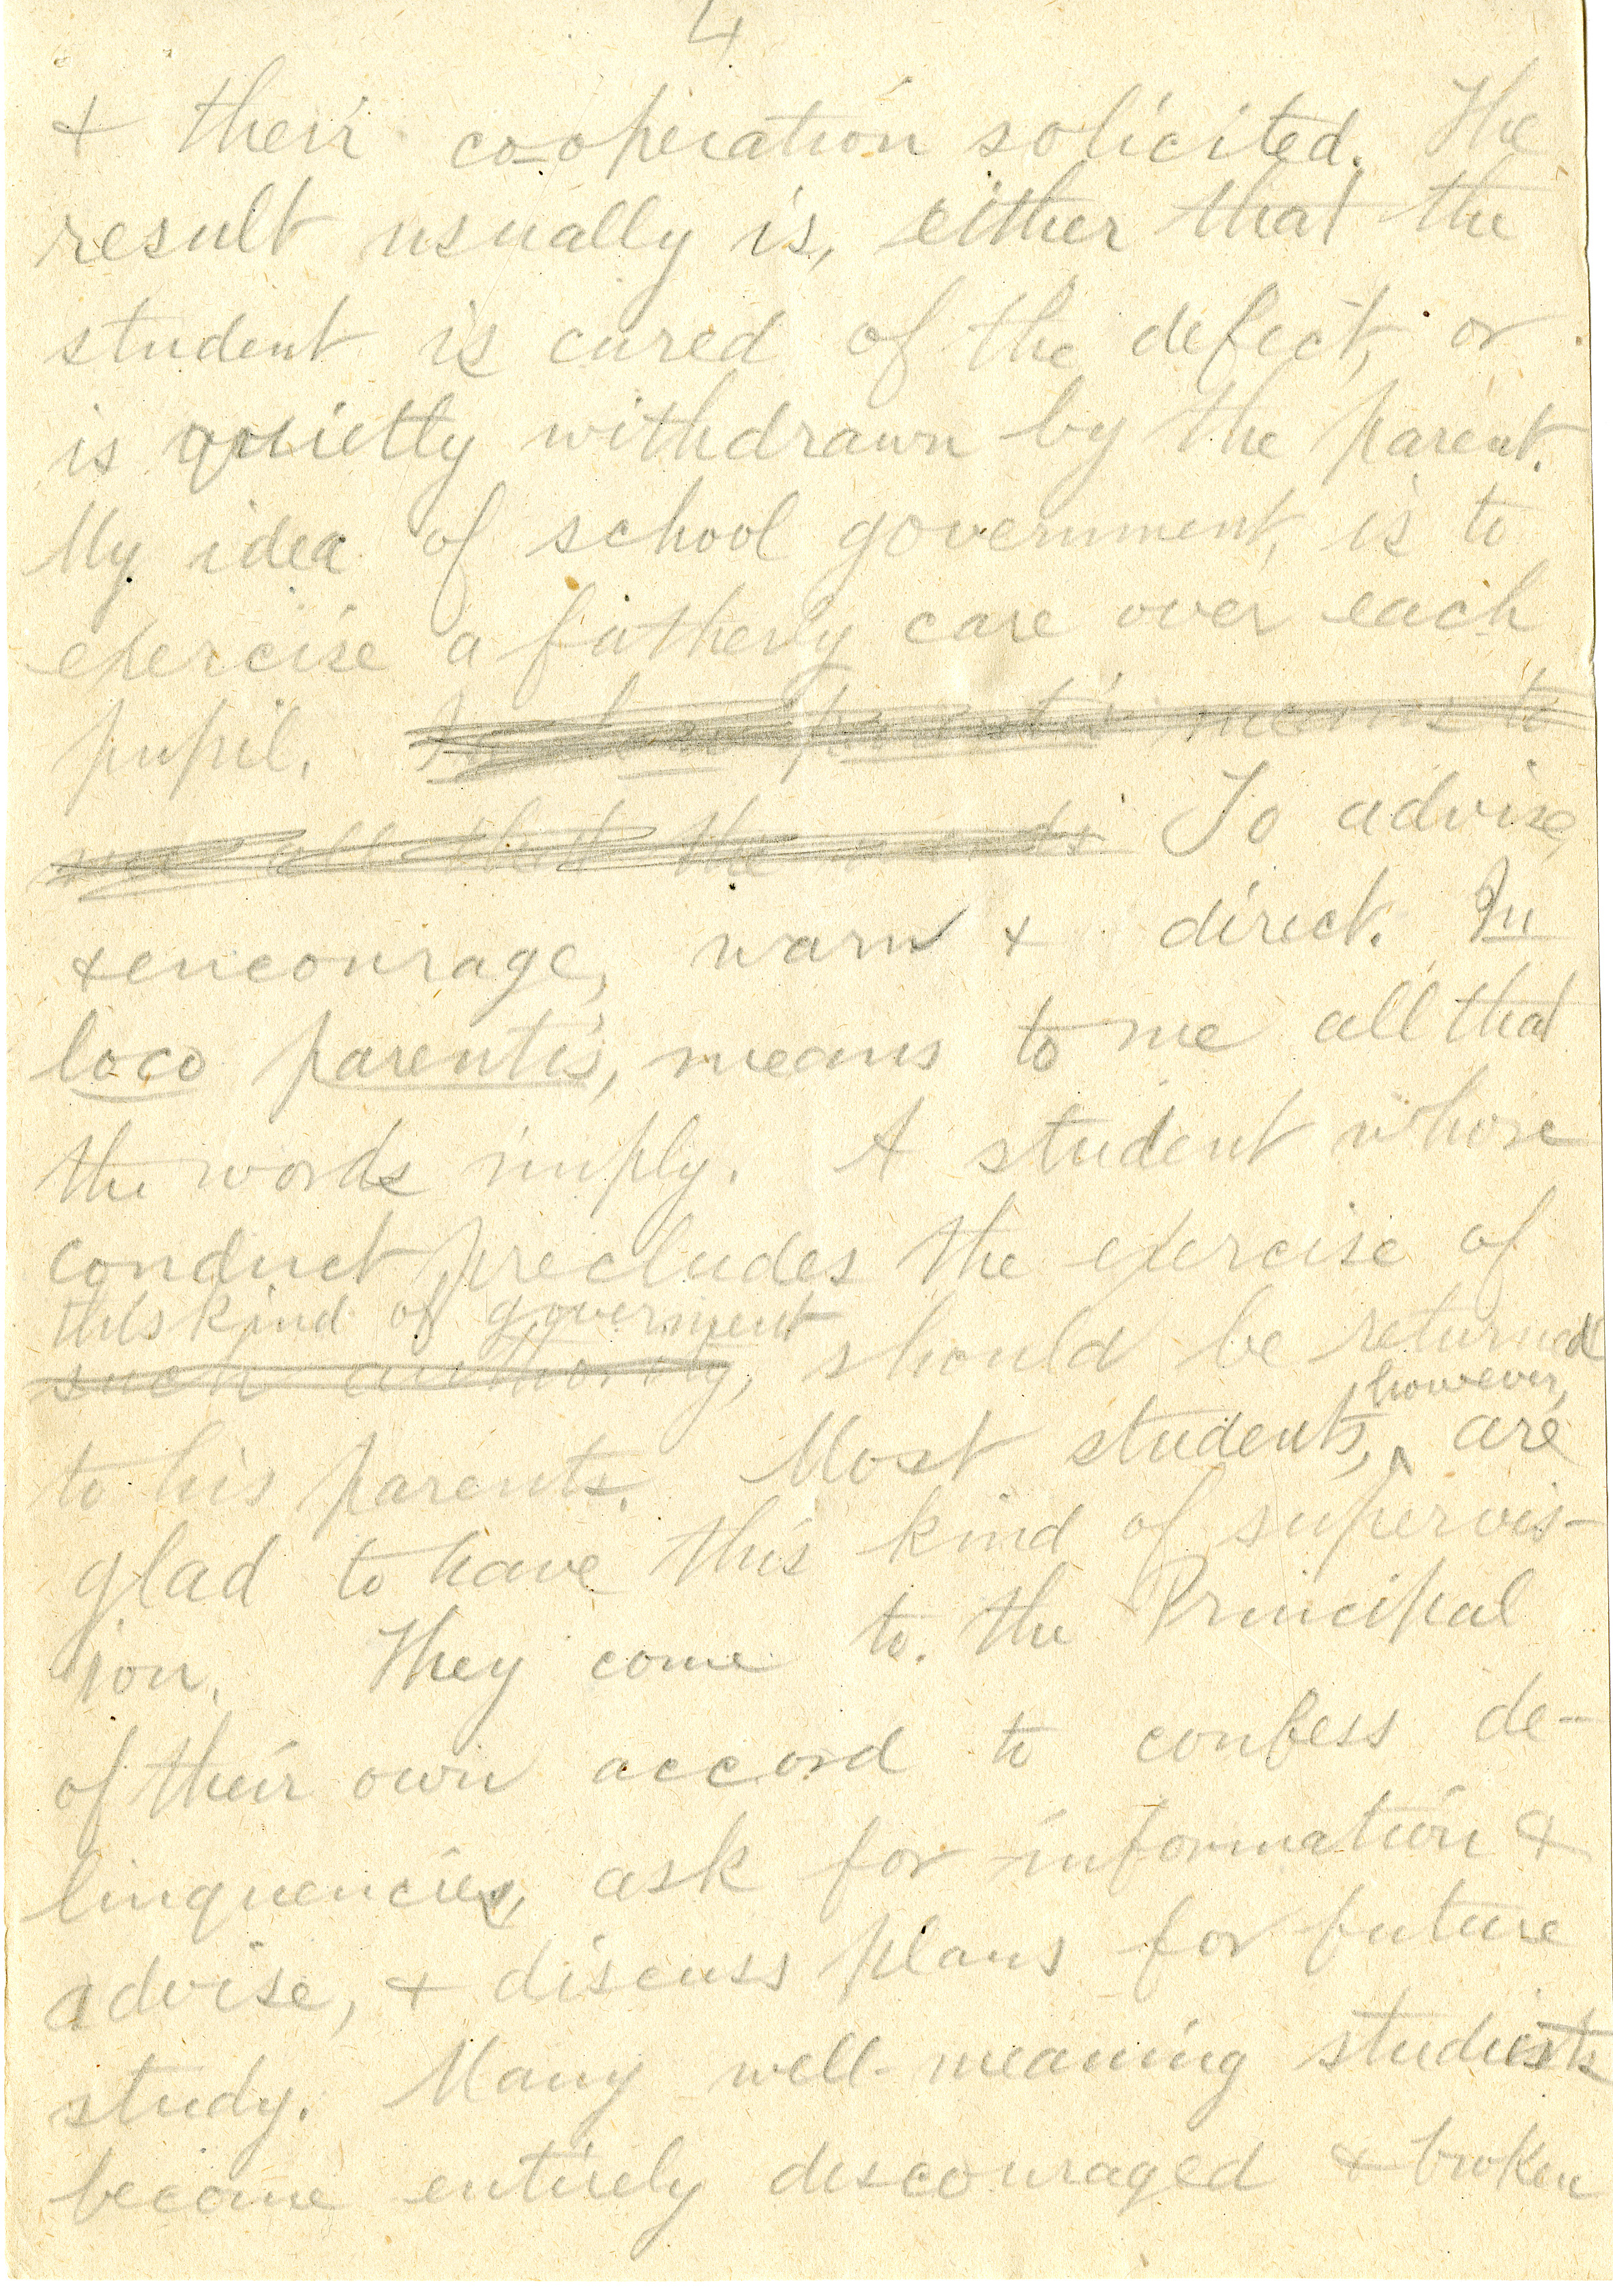 4
& their co-operation solicited. The
result usually is, either that the
student is cured of the defect, or
is quietly withdrawn by the parent.
My idea of school government, is to
exercise a fatherly care over each
pupil. In loco parentis means to
me all that the words To advise,
& encourage, warn & direct. In
loco parentis, means to me all that
the words imply. A student whose
conduct precludes the exercise of
this kind of goverment
such authority, should be returned
however,
to his parents. Most students, are
glad to have this kind of supervis-
ion. They come to the Principal
of their own accord to confess de-
linquencies, ask for information &
advise, & discuss plans for future
study. Many well-meaning students
become entirely discouraged & broken